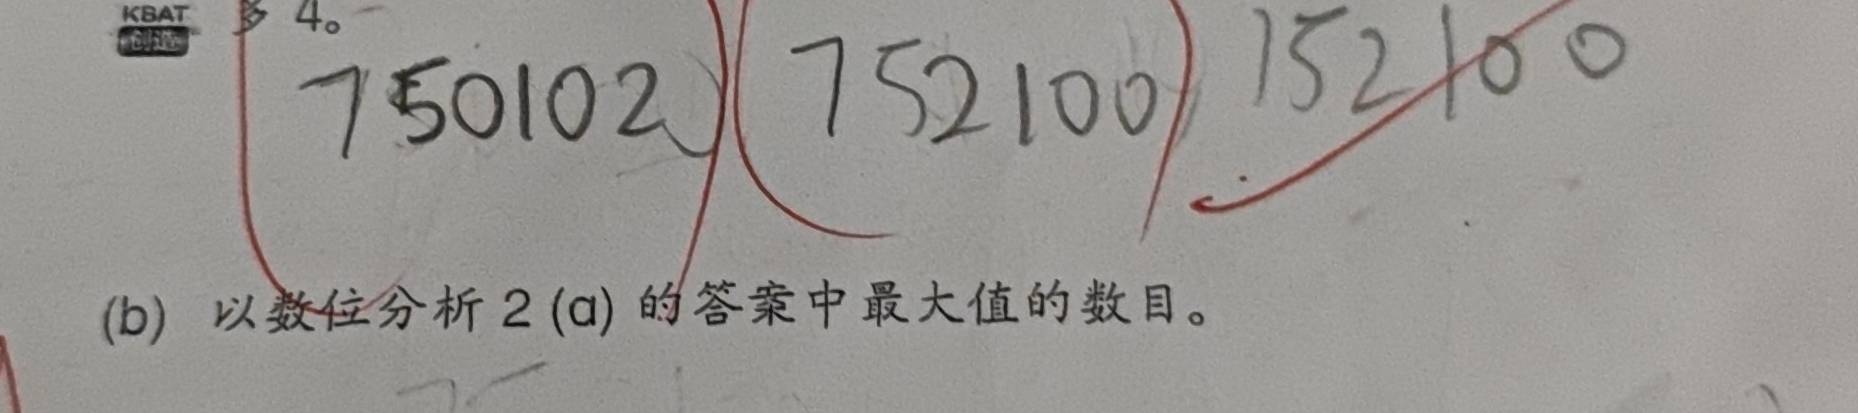 KBAT 多 4。
创造
750102 752100 152100
(b) 以数位分析 2 (a) 的答案中最大值的数目。